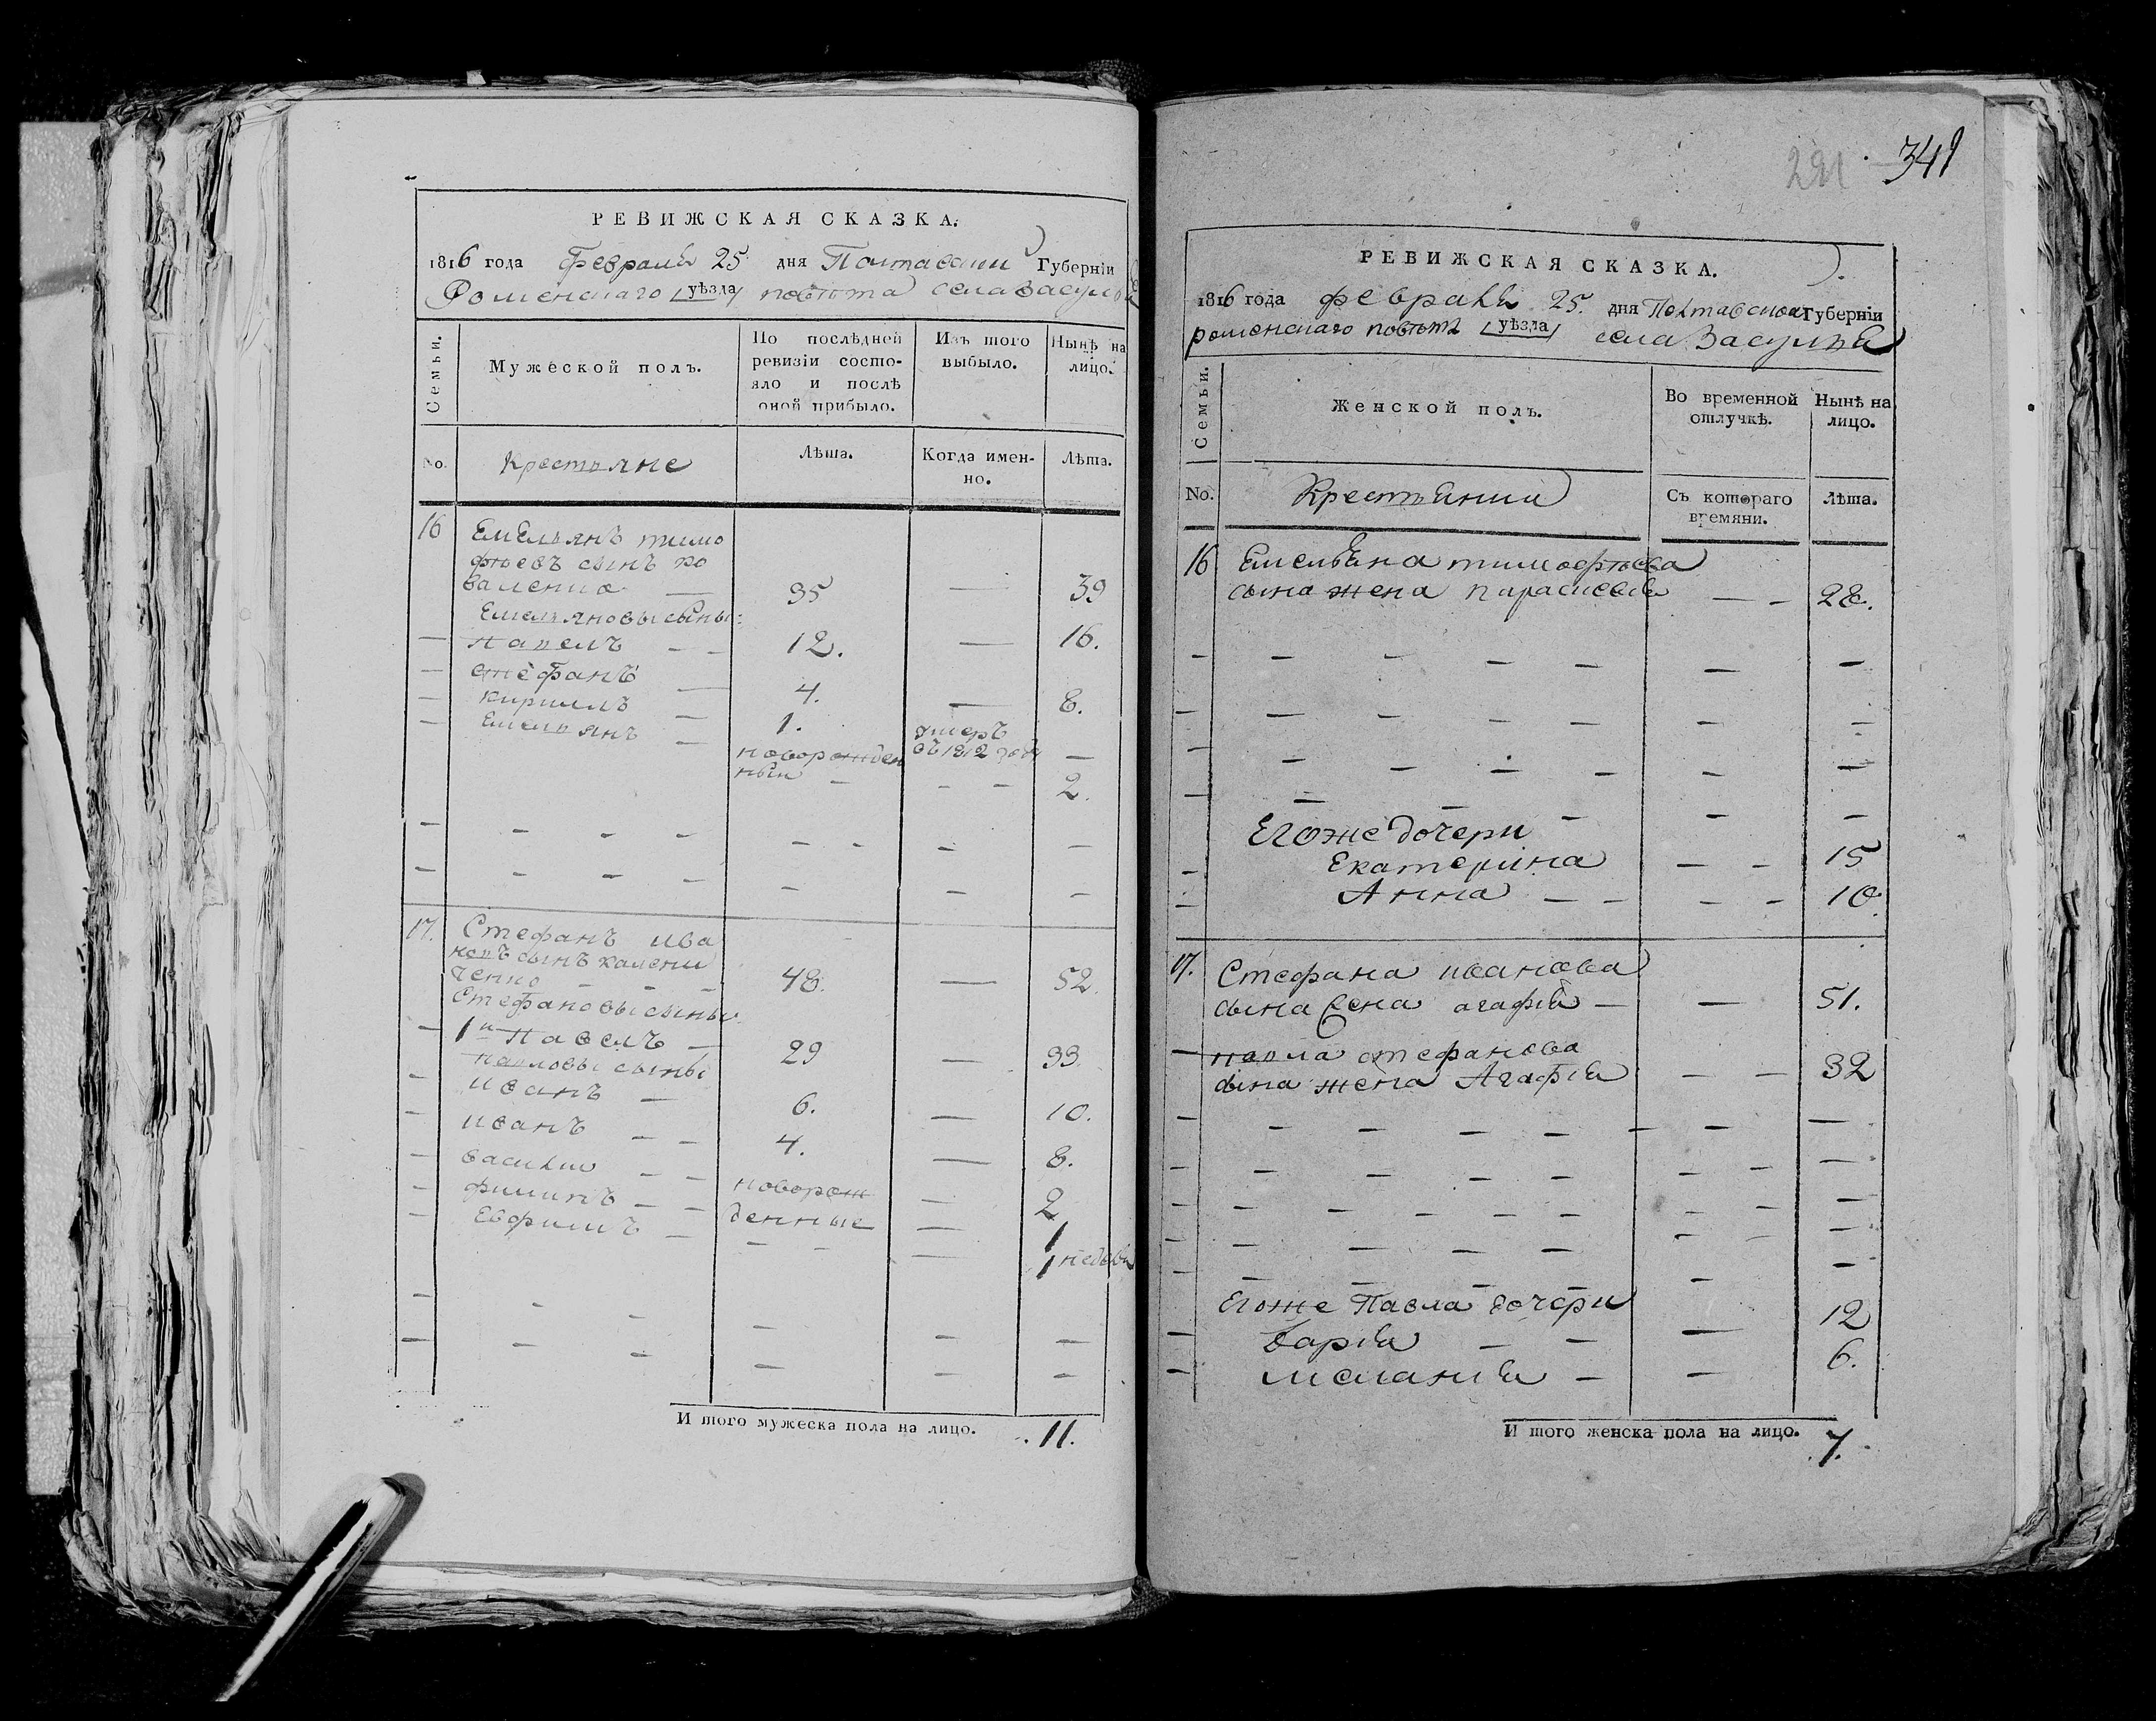 РЕВИЖСКАЯ СКАЗКА.
1816 года февраля 25 дня Полтавской Губерніи
Роменскаго уѣзда повѣта села Засулья
Семьи.
Мужеской полъ.
По послѣдней ревизіи состояло и послѣ оной прибыло.
Изъ того выбыло.
Нынѣ на лицо.
No.
Крестьяне
Лѣта.
Когда именно.
Лѣта.
16 Емельянъ тимо
фѣевъ сынъ ко
валенко — 35 — 39
Емельяновы сыны:
— павелъ — — 12. — 16.
— стефанъ — 4. — 8.
— кирилъ — 1. умеръ въ 1812 году —
— Емельянъ — новорожден
ный — — — 2.
17. Стефанъ ива
новъ сынъ калени
ченко — — — 48. — 52.
Стефановы сыны
— 1й павелъ — 29 — 33.
павловы сыны
— иванъ — 6. — 10.
— иванъ — — 4. — 8.
— василий — — новорож — 2
— филипъ — — денные — 1
— Евфимъ — — — — 1 недели
И того мужеска пола на лицо. 11.
291 341
РЕВИЖСКАЯ СКАЗКА.
1816 года февраля 25. дня Полтавской Губерніи
роменскаго повѣта уѣзда села Засулья
Семьи.
Женской полъ.
Во временной отлучкѣ.
Нынѣ на лицо.
No.
Крестьянки
Съ котораго времяни.
Лѣта.
16 Емельяна тимофѣева
сына жена параскевія — — 28.
Егоже дочери
— Екатерина — — 15
— Анна — — — — 10.
17. Стефана иванова
сына жена агафія — — 51.
— павла стефанова
сына жена Агафія — — 32
Егоже Павла дочери
— Варія — — — 12
— меланія — — 6.
И того женска пола на лицо. 7.